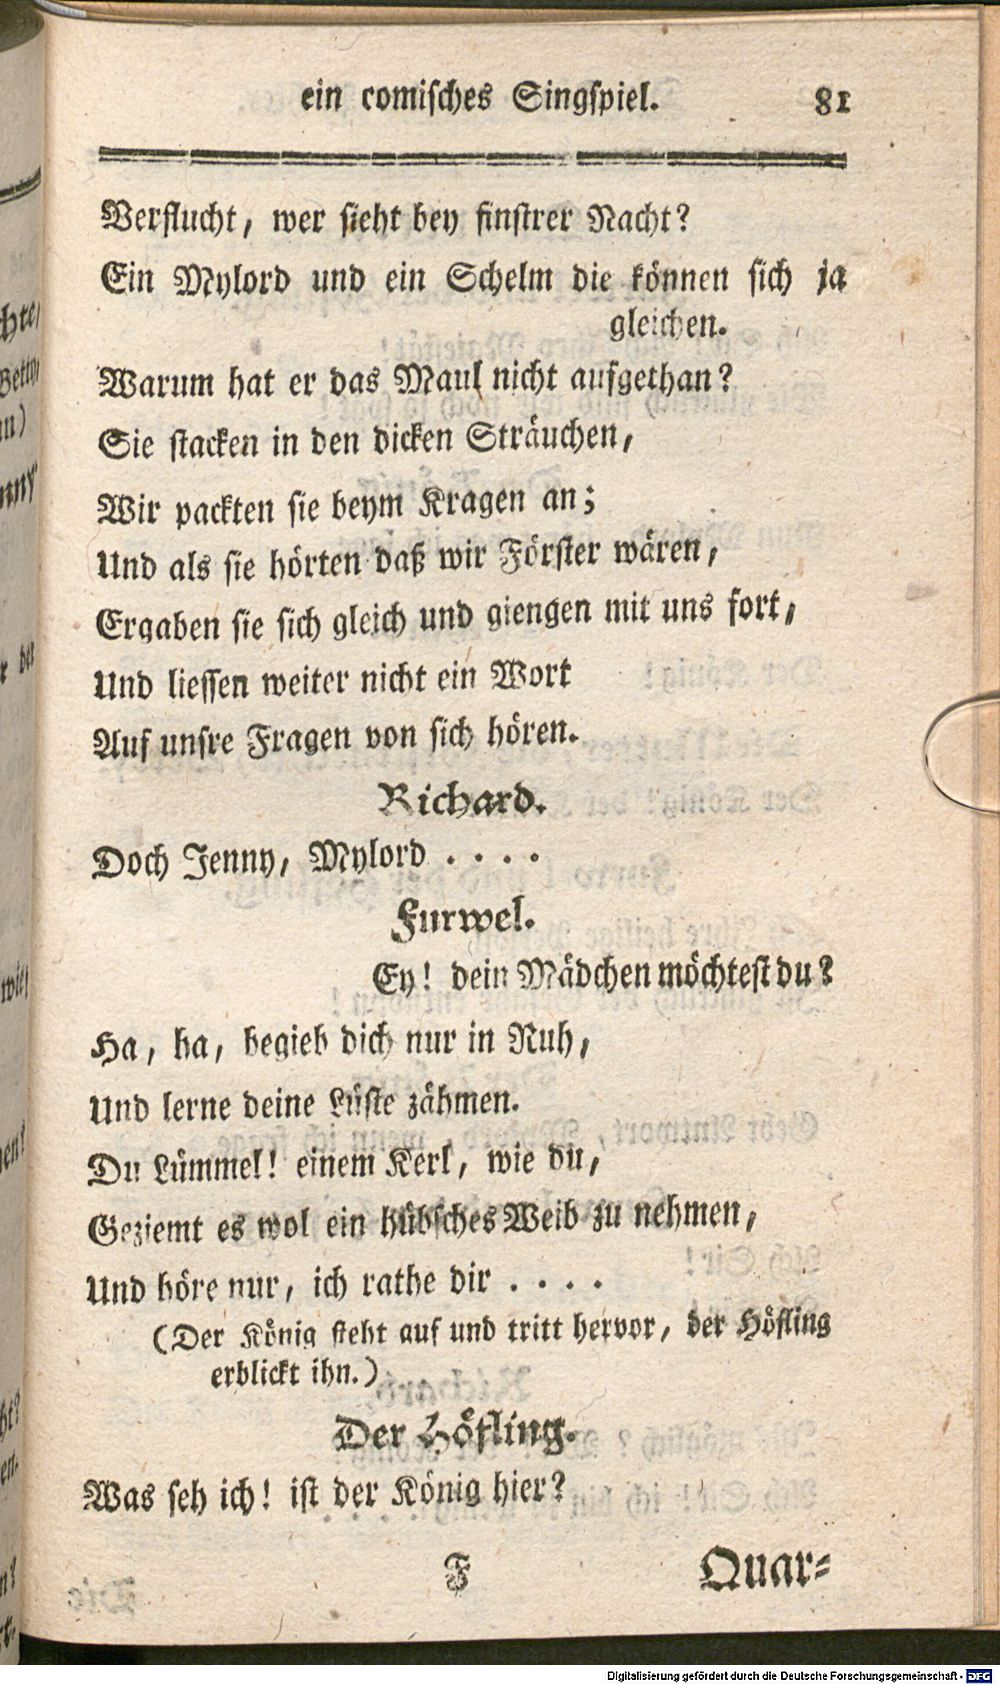 ein comiſches Singſpiel. 81
Verflucht, wer ſieht bey finſtrer Nacht?
Ein Mylord und ein Schelm die können ſich ja
gleichen.
Warum hat er das Maul nicht aufgethan?
Sie ſtacken in den dicken Sträuchen,
Wir packten ſie beym Kragen an;
Und als ſie hörten daß wir Förſter wären,
Ergaben ſie ſich gleich und giengen mit uns fort,
Und lieſſen weiter nicht ein Wort
Auf unſre Fragen von ſich hören.
Richard.
Doch Jenny, Mylord . . . .
Furwel.
Ey! dein Mädchen möchteſt du?
Ha, ha, begieb dich nur in Ruh,
Und lerne deine Lüſte zähmen.
Du Lümmel! einem Kerl, wie du,
Geziemt es wol ein hübſches Weib zu nehmen,
Und höre nur, ich rathe dir . . . .
(Der König ſteht auf und tritt hervor, der Höfling
erblickt ihn.)
Der Höfling.
Was ſeh ich! iſt der König hier?
F Quar-
Digitalisierung gefördert durch die Deutsche Forschungsgemeinschaft - DFG